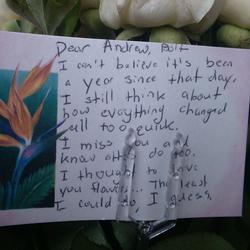 Dear Andrew,
I can't believe it's been
a year since that day.
I still think about
how everything changed
all too quick.
I miss you and
know others do too.
I thought to leave
you flowers... The least
I could do, I guess.